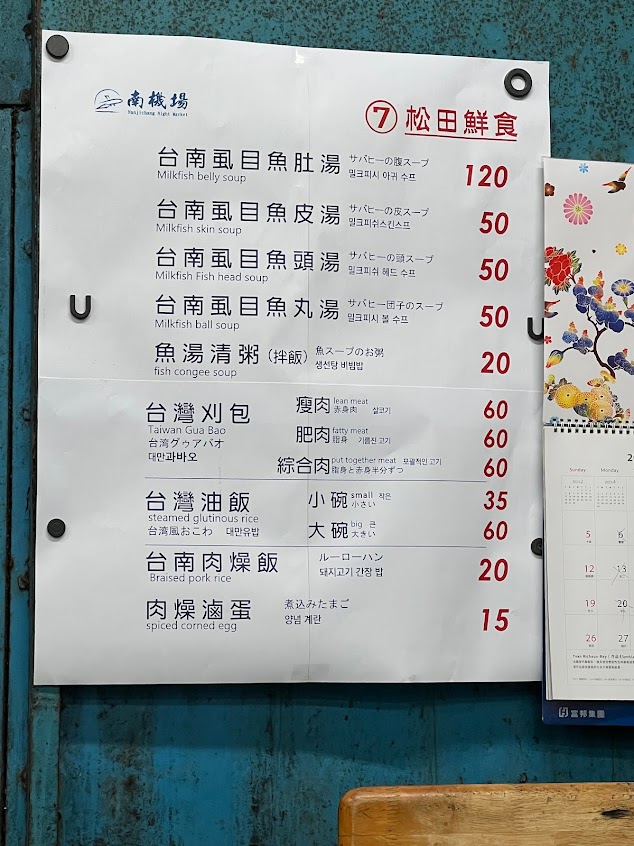 南機場
Nanjichang Night Market
⑦ 松田鮮食
台南虱目魚肚湯 サバヒーの腹スープ 120
Milkfish belly soup 밀크피시 아귀 수프
台南虱目魚皮湯 サバヒーの皮スープ 50
Milkfish skin soup 밀크피쉬스킨스프
台南虱目魚頭湯 サバヒーの頭スープ 50
Milkfish Fish head soup 밀크피쉬 헤드 수프
台南虱目魚丸湯 サバヒー団子のスープ 50
Milkfish ball soup 밀크피시 볼 수프
魚湯清粥(拌飯) 魚スープのお粥 20
fish congee soup 생선탕 비빔밥
台灣刈包 瘦肉 lean meat 60
赤身肉 살코기
Taiwan Gua Bao
台湾グゥアバオ 肥肉 fatty meat 60
脂身 기름진 고기
대만과바오 綜合肉 put together meat 포괄적인 고기 60
脂身と赤身半分ずつ
台灣油飯 小碗 small 작은 35
小さい
steamed glutinous rice
台湾風おこわ 대만유밥 大碗 big 큰 60
大きい
台南肉燥飯 ルーローハン 20
Braised pork rice 돼지고기 간장 밥
肉燥滷蛋 煮込みたまご 15
spiced corned egg 양념 계란
Sunday Monday
5 6
12 13
19 20
26 27
富邦集團